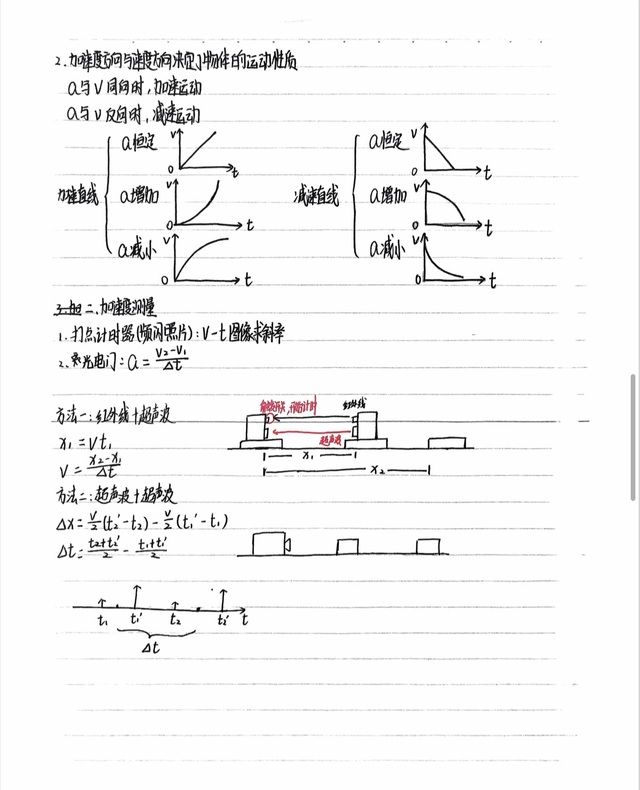 2. 加速度方向与速度方向决定了物体的运动性质
a与v同向时，加速运动
a与v反向时，减速运动
加速直线
a恒定 v 0 t
a增加 v 0 t
a减小 v 0 t
减速直线
a恒定 v 0 t
a增加 v 0 t
a减小 v 0 t
二.加速度测量
1. 打点计时器(频闪照片): v-t图像求斜率
2. 光电门: a = (v₂-v₁)/Δt
方法一: 红外线+超声波
开始计时 红外线
超声波
x₁ = vt₁
v = (x₂-x₁)/Δt
x₁
x₂
方法二: 超声波+超声波
Δx = v/2(t₂'-t₂) - v/2(t₁'-t₁)
Δt = (t₂+t₂')/2 - (t₁+t₁')/2
t₁ t₁' t₂ t₂' t
Δt